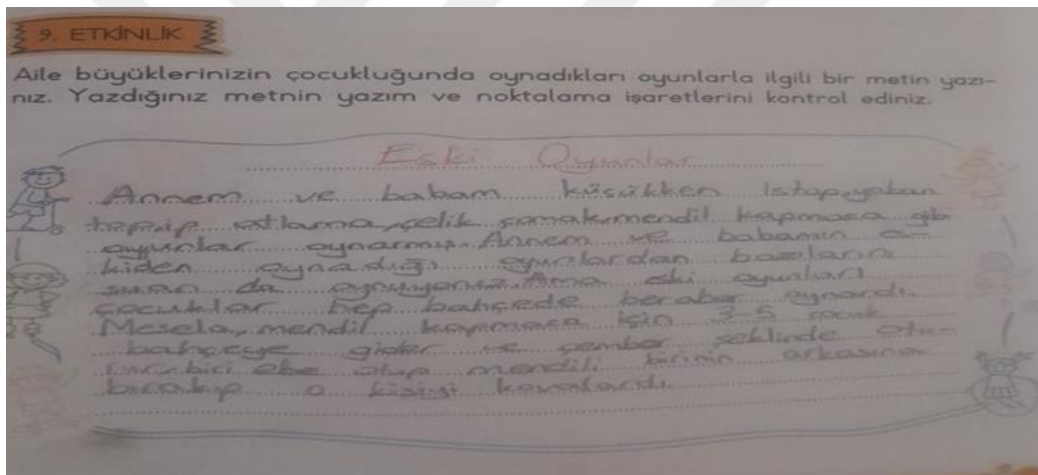 9. ETKİNLİK
Aile büyüklerinizin çocukluğunda oynadıkları oyunlarla ilgili bir metin yazı-
nız. Yazdığınız metnin yazım ve noktalama işaretlerini kontrol ediniz.
Eski Oyunlar
Annem ve babam küçükken istop, yakan
top, ip atlama, çelik çomak, mendil kapmaca gibi
oyunlar oynarmış. Annem ve babamın
oynadığı oyunlardan bazılarını
da oynuyoruz. Ama eski oyunları
çocuklar hep bahçede beraber oynardı.
Mesela, mendil kapmaca için 3-5 çocuk
bahçeye gider ve çember şeklinde otu-
biri ebe olup mendili birinin arkasına
bırakıp o kişiyi kovalardı.